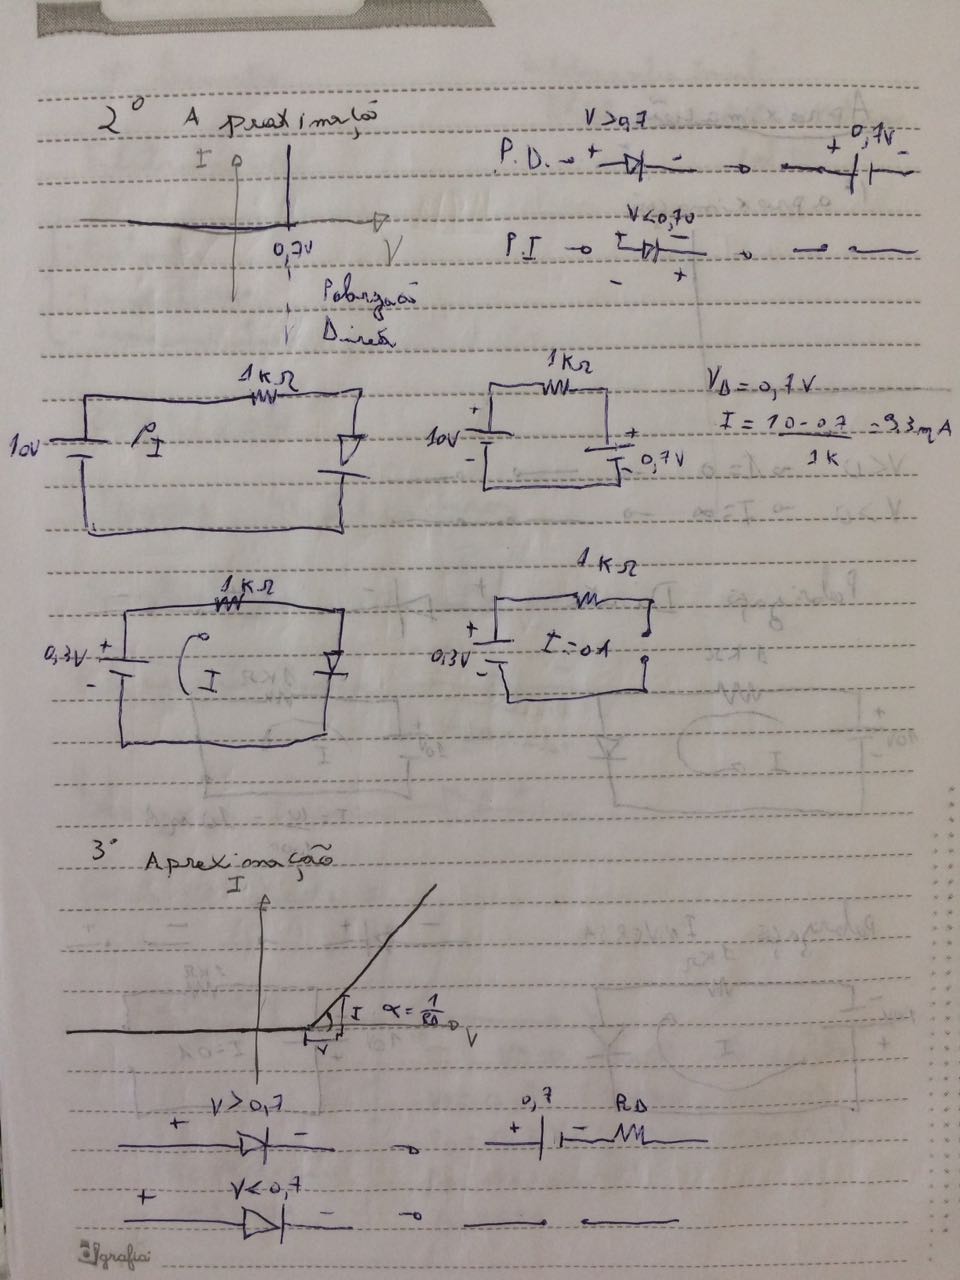 2º Aproximação
I
V
0,7V
Polarização
Direta
V>0,7
P.D. + - + 0,7V -
V<0,7V
P.I + - - +
1KΩ
10V I
1KΩ
+ 10V - + 0,7V -
VD = 0,7V
I = 10-0,7 = 9,3mA
1K
1KΩ
0,3V + - I
1KΩ
+ 0,3V - I=0A
3º Aproximação
I
I α = 1
RD
V V
V>0,7 0,7 RD
+ - + -
V<0,7
+ -
grafia